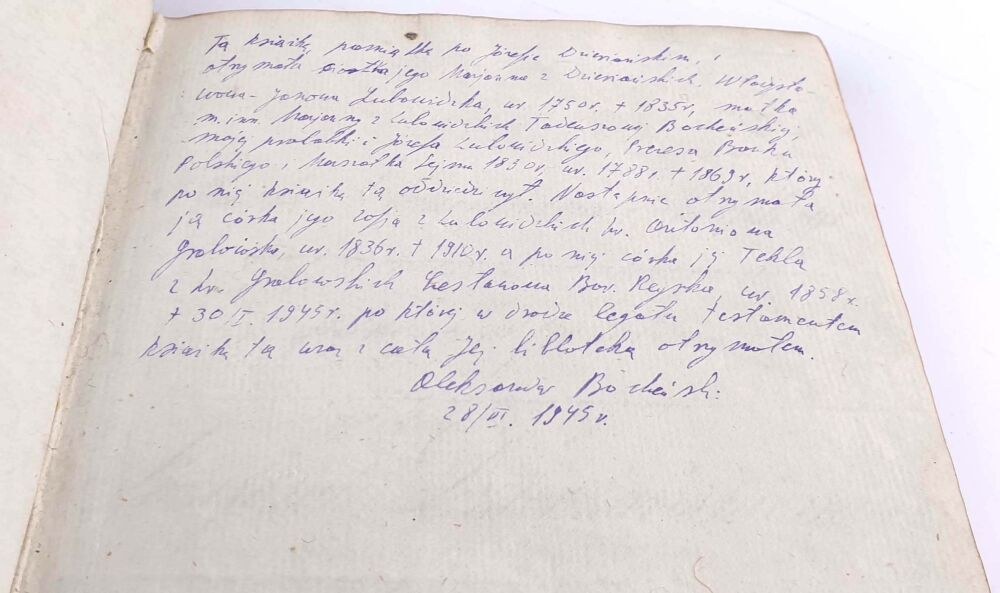 Tą książkę, pamiątkę po Józefie Dzierzańskim, i
otrzymała ciotka jego Marjanna z Dzierzańskich Władysła-
wowa-Janowa Lubowidzka, ur. 1750r. + 1835r, matka
m. inn. Marjanny z Lubowidzkich Tadeuszowej Bocheńskiej,
mojej prababki i Józefa Lubowidzkiego, Prezesa Banku
Polskiego i Marszałka Sejmu 1830r, ur. 1788r. + 1869r, który
po niej książkę tą odziedziczył. Następnie otrzymała
ją córka jego Zofja z Lubowidzkich hr. Antoniowa
Grabowska, ur. 1836r. + 1910r. a po niej córka jej Tekla
z hr. Grabowskich Bar. Reyska, ur. 1858r.
+ 30/I. 1945r. po której w drodze legatu testamentem
książkę tą wraz z całą Jej bibloteką otrzymałem.
Aleksander Bocheński
28/VI. 1945r.